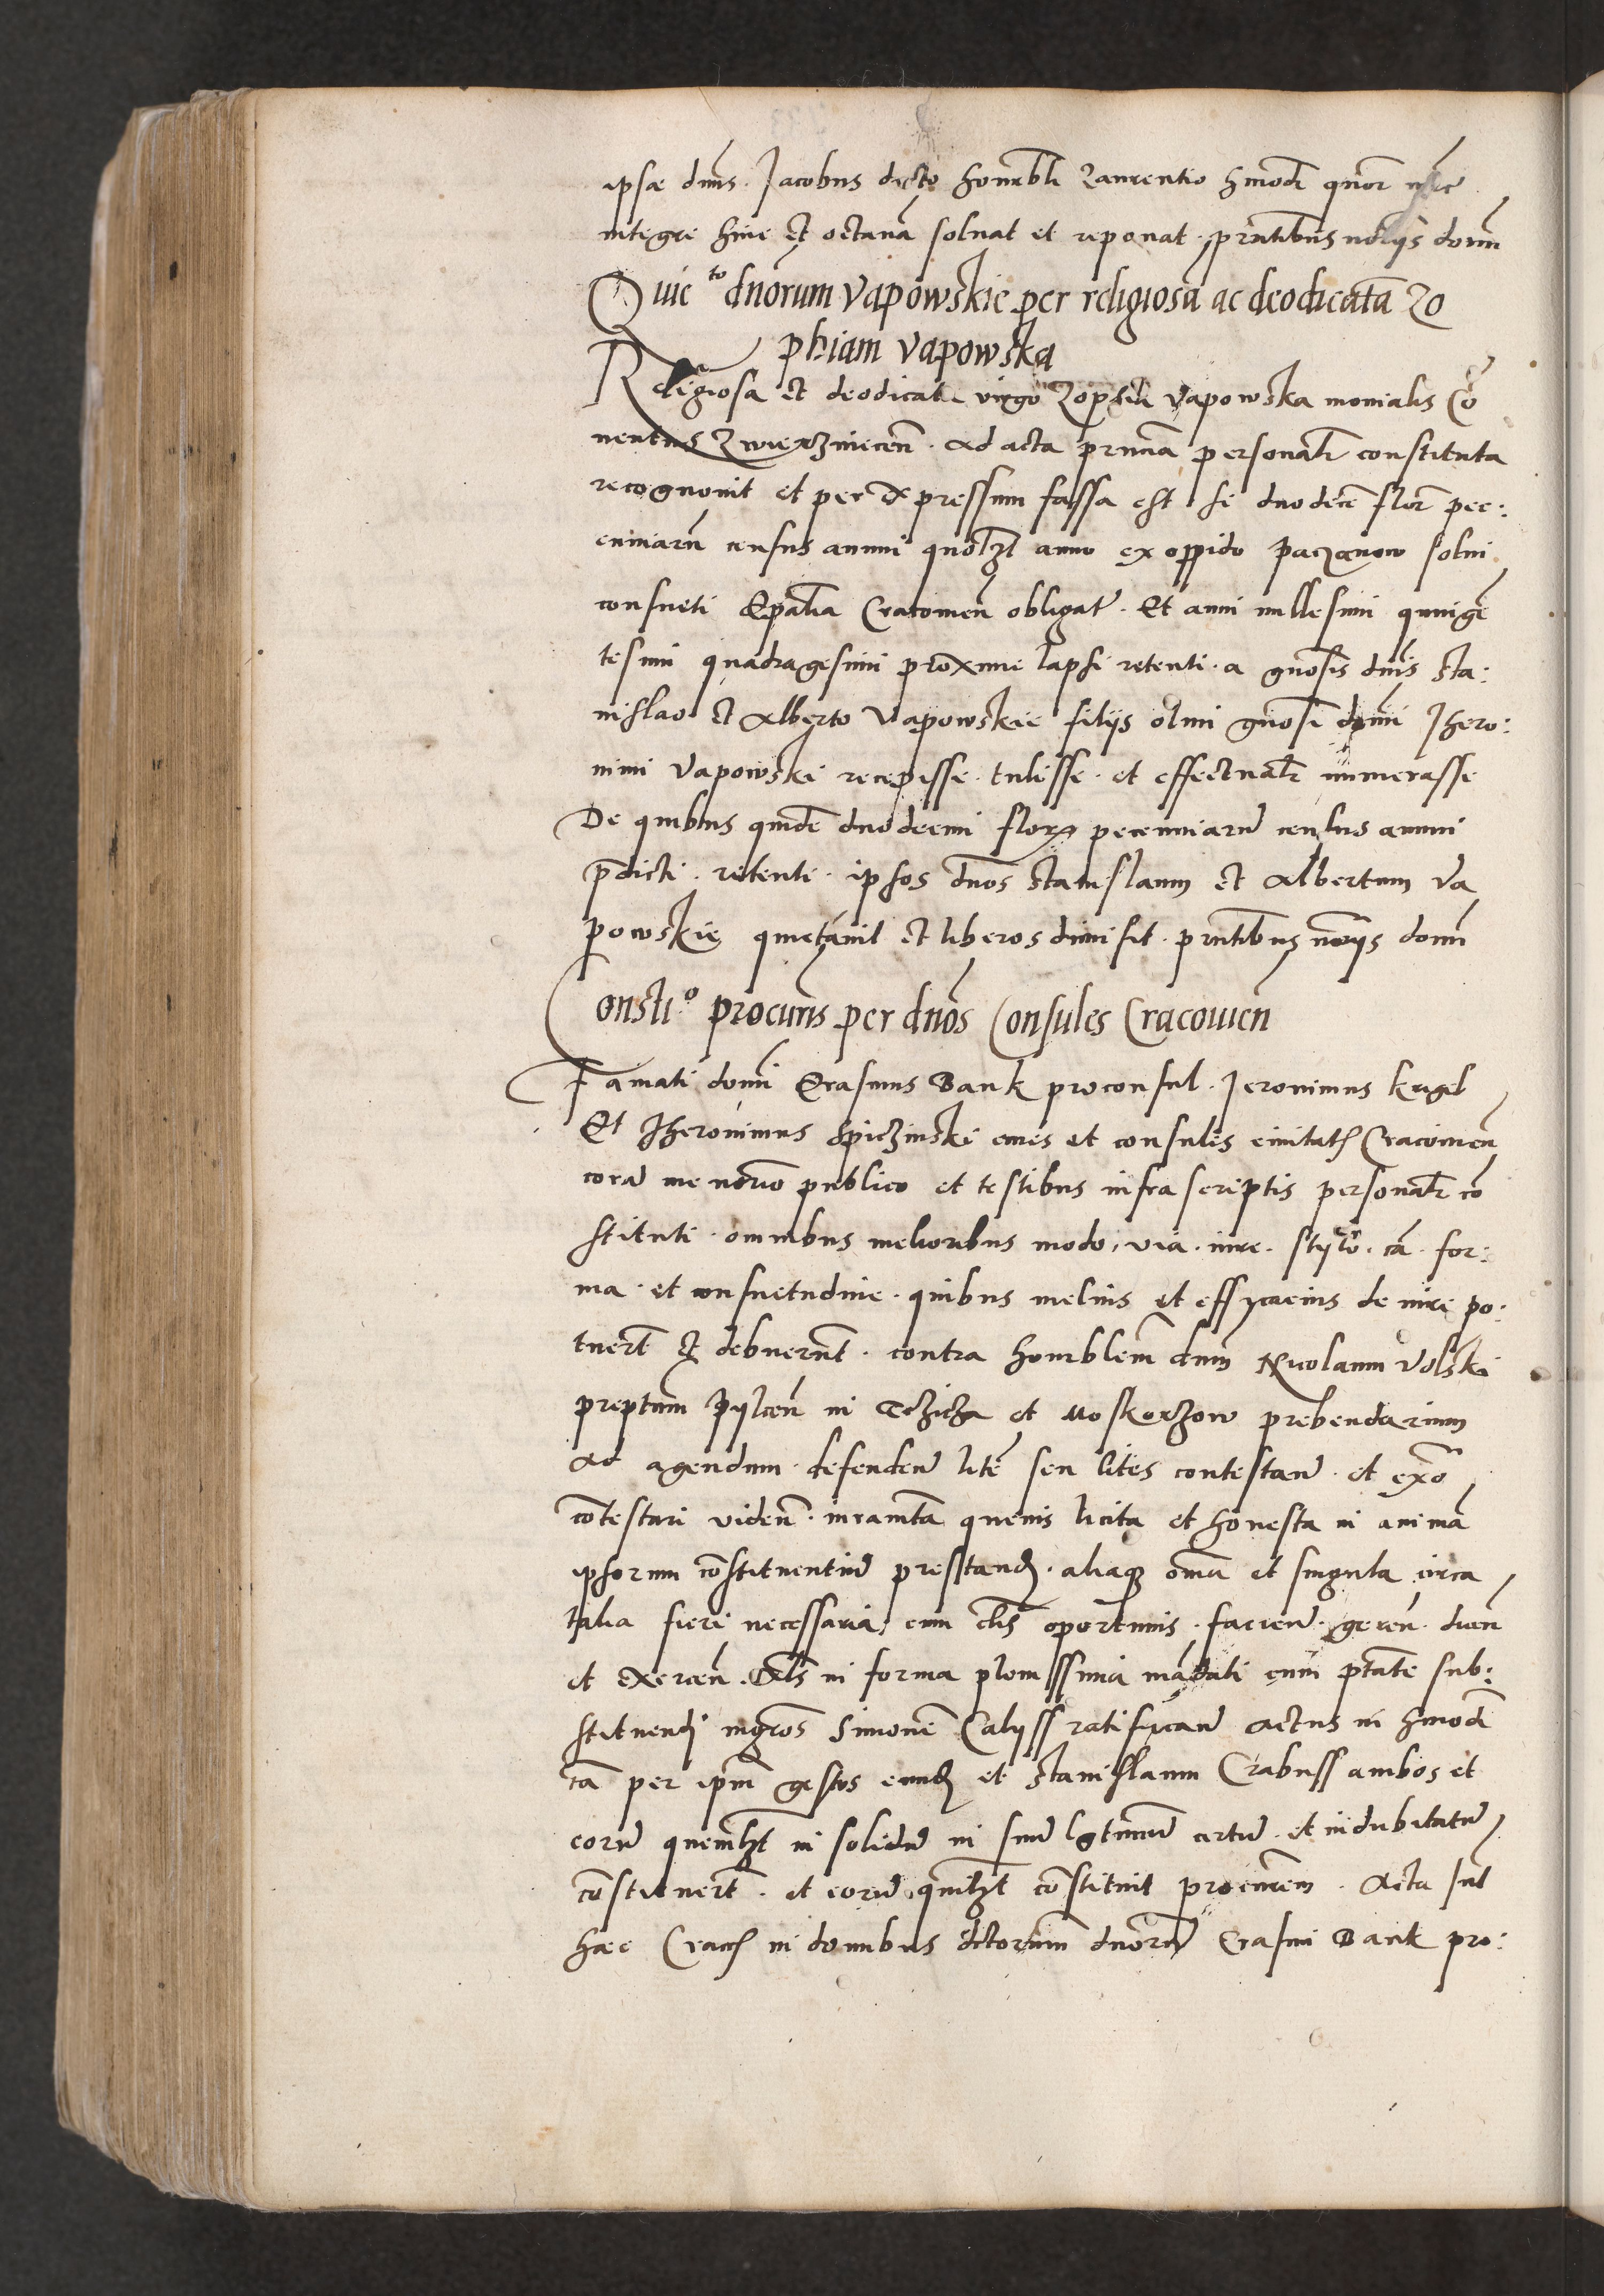 ipse dnus. Jacobus dicto honorbli Laurentio hmodi quor
integre hinc et octavā solvat et reponat. pntibus notrijs domi
Quic to dnorum Vapowskie per religiosā ac deodicatā Zo
phiam Vapowska
Religiosa et deodicata virgo Zophia Vapowska monialis Cō
ventus Zwierzinecen. ad acta pnncia personalr constituta
recognovit et per expressum fassa est se duodecē flor pec:
cuniarū census annui quolzt anno ex oppido Paczanow solvi
consueti Epalia Cracovien obligatr. Et anni millesimi quinge
tesimi quadragesimi proxime lapsi retenti. a gnosis dnis Sta:
nislao et Alberto Vapowskie filijs olim gnosi domi Jhero:
nimi Vapowski recepisse. tulisse. et effectualr numerasse
De quibus quidē duodecimi flor peccuniarū census annui
p̄dicti. retenti. ipsos dnos Stanislaum et Albertum Va
powskie quietavit et liberos dimisit. pntibus notrijs domi
Consti.o procuris per dnōs Consules Cracovien
Famati domi Erasmus Bank proconsul. Jeronimus krigel
Et Jheronimus Spiczinski cives et consules civitatis Cracovien
corā me notrio publico et testibus infra scriptis personalr cō
stituti. omnibus melioribus modo, via. iure. stijlo. cā. for:
ma. et consuetudine. quibus melius et effycacius de iure po:
tuert et debuerunt. contra honorblem dnum Nicolaum Volski
preptum Pijlcen in Tczicza et Moskorzow prebendarium
Ad agendum. defenden litē seu lites contestan. et ex o
cōtestari viden. iuramta quevis licita et honesta in animā
ipsorum cōstituentiū prestand. aliaq omia et singula circa
talia fieri necessaria, cum clis oportunis. facien. geren. dicen
et exercen. Als in forma plenissima mādati cum ptate sub:
stituendi mgros Simonē Calijss ratifican actus in hmodi
cā per ipm gestos eund et Stanislaum Crabuss ambos et
eorū quemlzt in solidū in suū lgtimū certū. et indubitatū
cōstituert. et eorū quilzt cōstituit procurem. Acta sut
haec Crac in domibus dctorum dnorū Erasmi Bank pro: